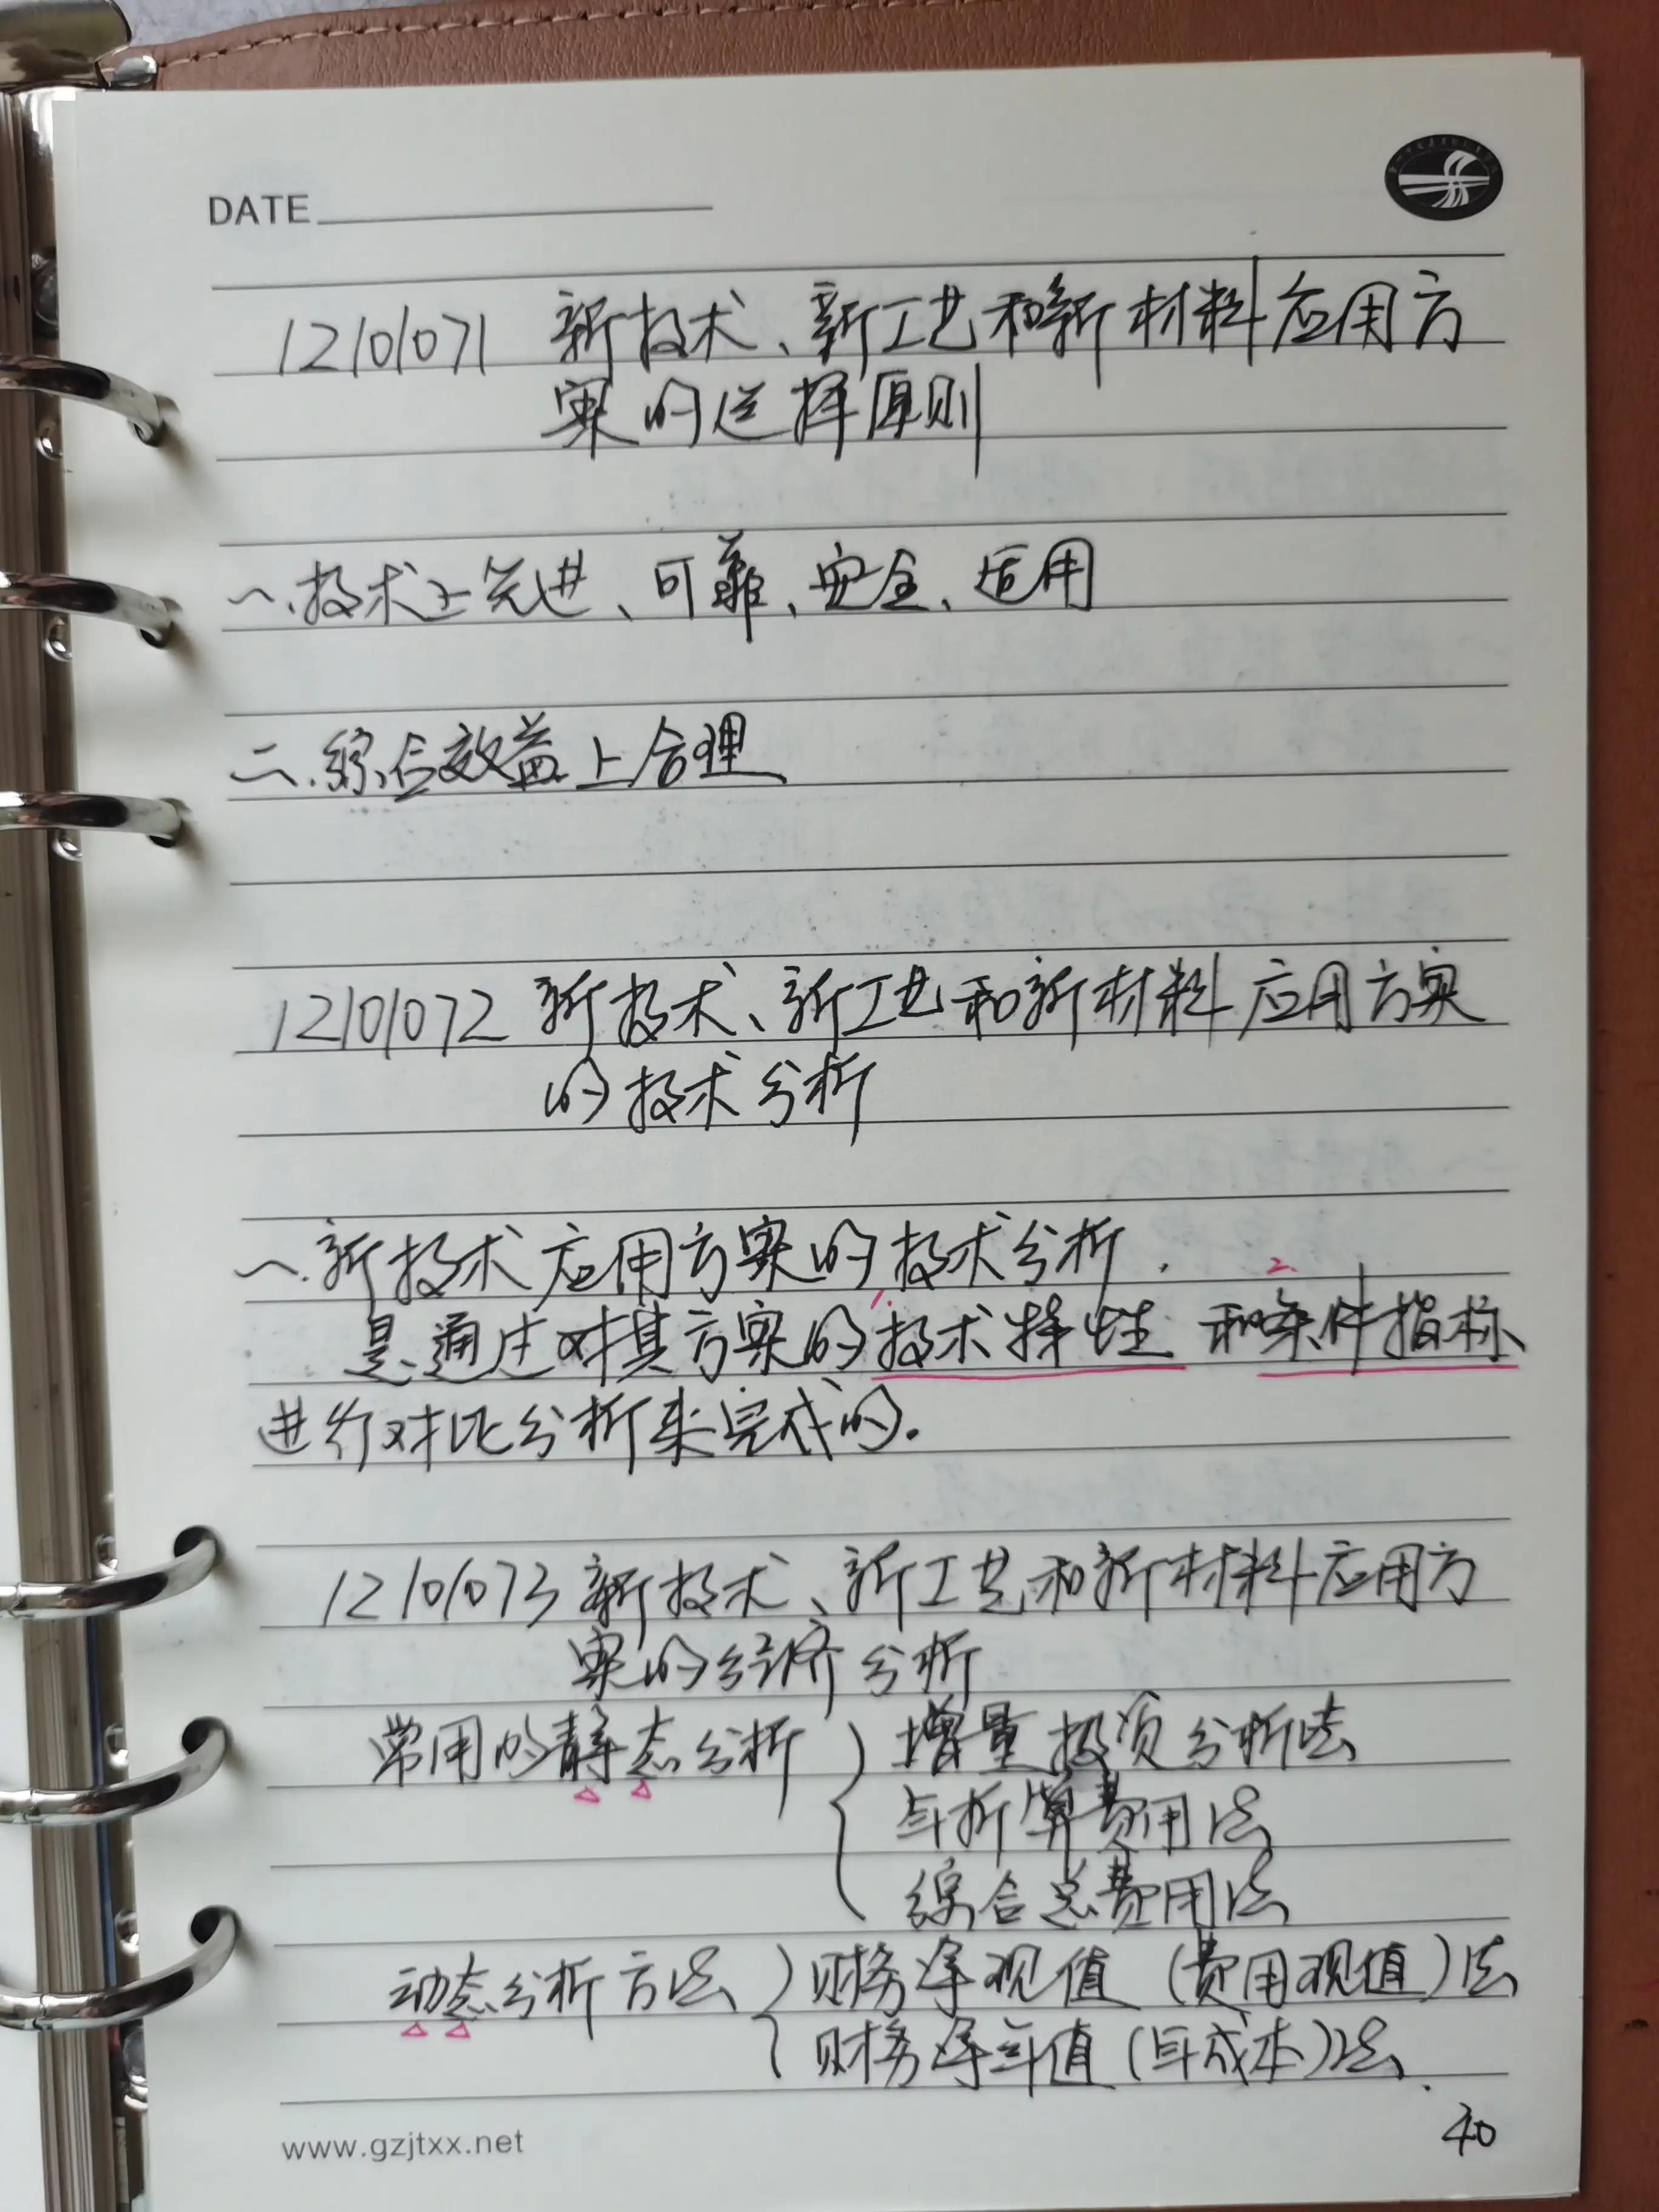 DATE
1Z101071 新技术、新工艺和新材料应用方
案的选择原则
一.技术上先进、可靠、安全、适用
二.综合效益上合理
1Z101072 新技术、新工艺和新材料应用方案
的技术分析
一.新技术应用方案的技术分析.
1. 2.
是通过对其方案的技术特性 和条件指标
进行对比分析来完成的.
1Z101073 新技术、新工艺和新材料应用方
案的经济分析
常用的静态分析 { 增量投资分析法
年折算费用法
综合总费用法
动态分析方法 { 财务净现值(费用现值)法
财务净年值(年成本)法.
www.gzjtxx.net
40